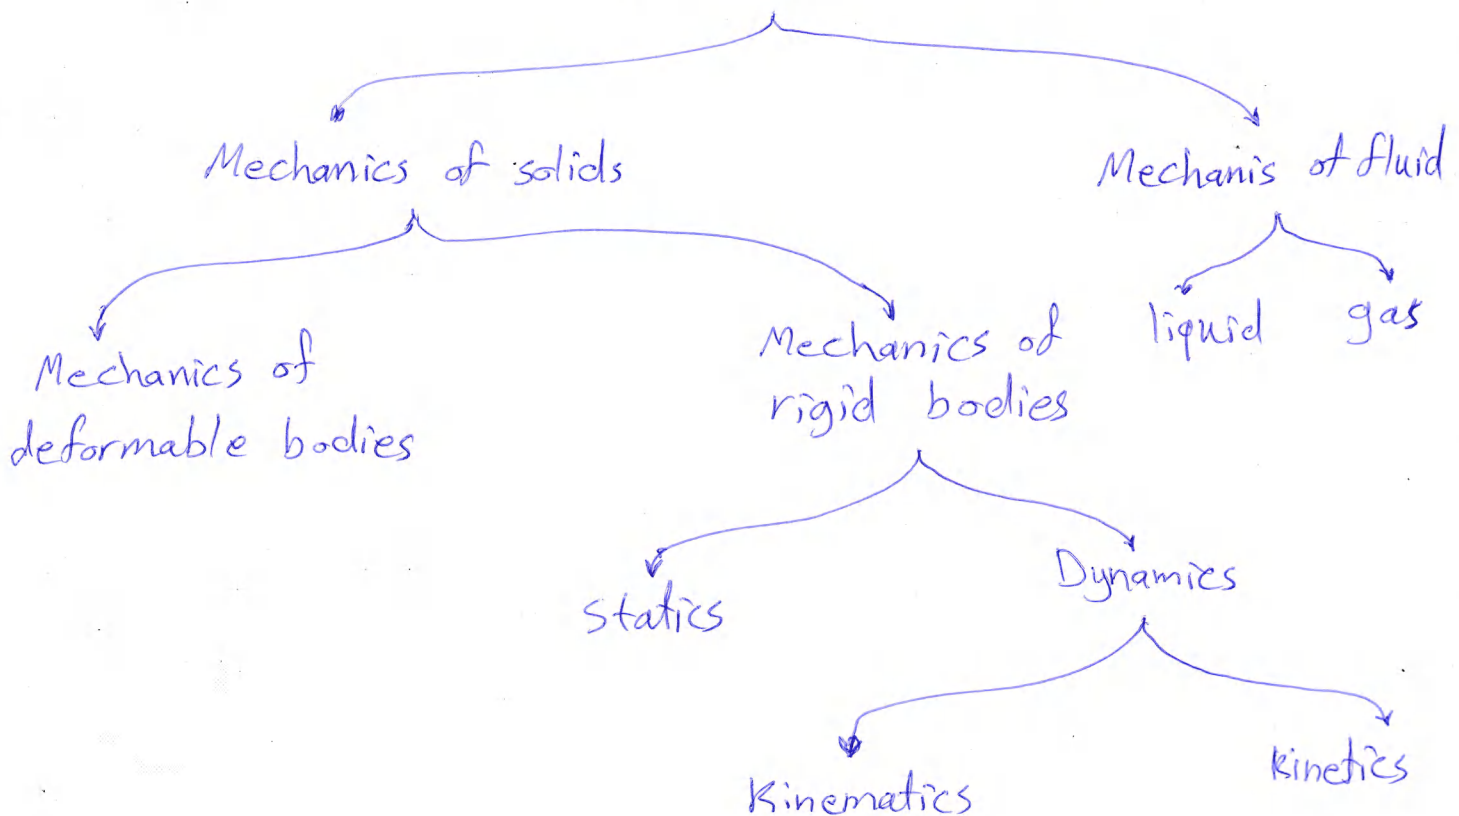 Mechanics of solids
Mechanis of fluid
liquid
gas
Mechanics of
deformable bodies
Mechanics of
rigid bodies
Statics
Dynamics
Kinematics
Kinetics